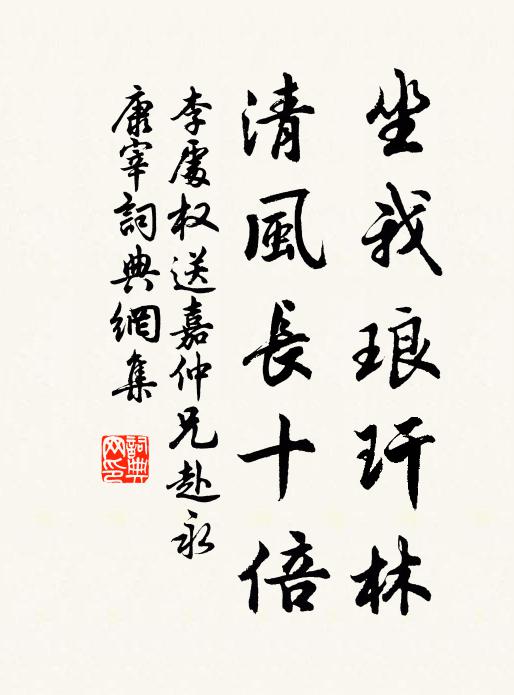 坐我琅玕林
清風長十倍
李處权送嘉仲兄赴永
康宰詞典網集
詞典
网印